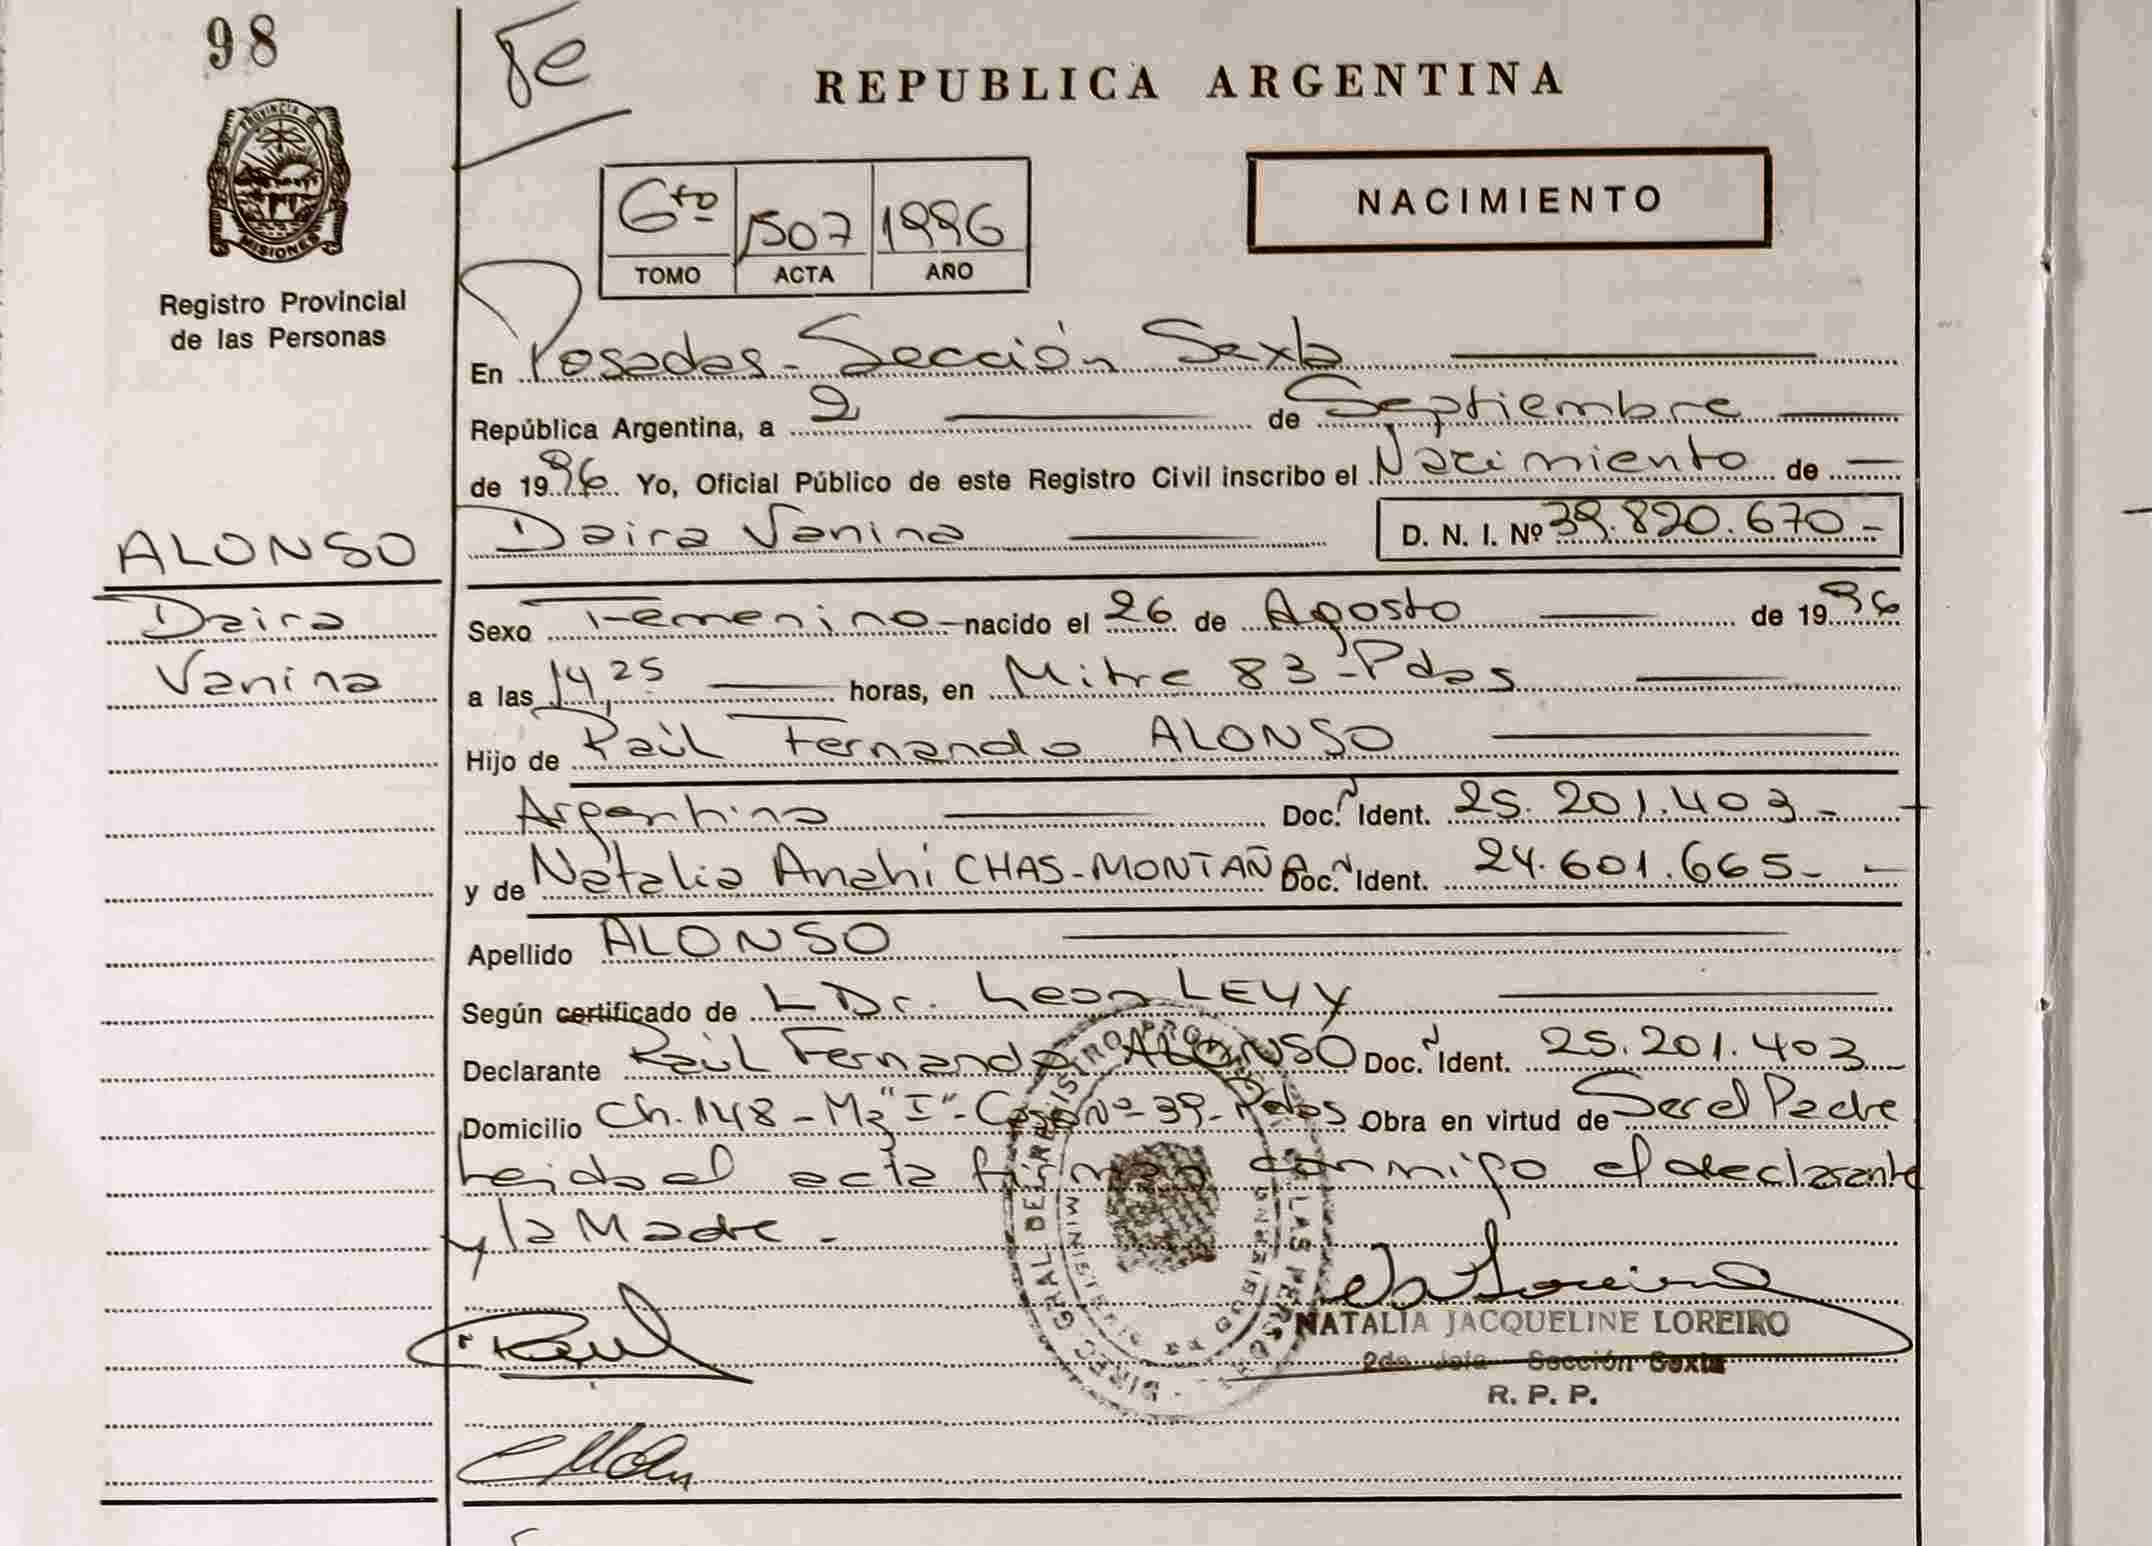 98
Te
REPUBLICA ARGENTINA
PROVINCIA DE
MISIONES
Registro Provincial
de las Personas
6to 1507 1996
TOMO ACTA AÑO
NACIMIENTO
En Posadas - Sección Sexta
República Argentina, a 2 de Septiembre
de 1996 Yo, Oficial Público de este Registro Civil inscribo el Nacimiento de
Daira Vanina D. N. I. Nº 39.820.670-
ALONSO
Daira
Vanina
Sexo Femenino - nacido el 26 de Agosto de 1996
a las 14,25 horas, en Mitre 83 - Pdas
Hijo de Raúl Fernando ALONSO
Argentino Doc. Ident. 25.201.403-
y de Natalia Anahi CHAS-MONTAÑA Doc. Ident. 24.601.665-
Apellido ALONSO
Según certificado de L Dr. Leon LEVY
Declarante Raúl Fernando ALONSO Doc. Ident. 25.201.403
Domicilio Ch. 148 - Mz "I" - Casa Nº 39 - Pdas Obra en virtud de Ser el Padre
Leida el acta firman conmigo el declarante
y la Madre. -
Raul
NATALIA JACQUELINE LOREIRO
2do. Jefe Sección Sexta
R. P. P.